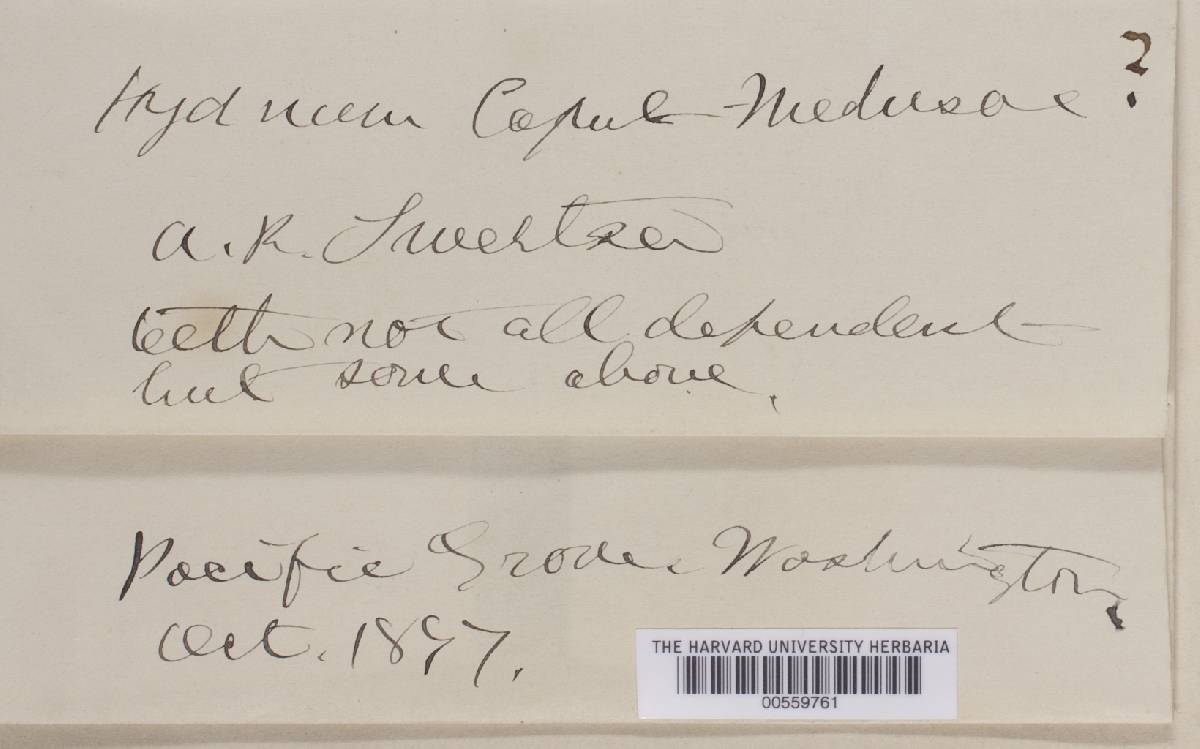 Hydnum Caput-Medusae ?
A. R. Sweetser
teeth not all dependent
but some above.
Pacific Grove, Washington,
Oct. 1897.
THE HARVARD UNIVERSITY HERBARIA
00559761